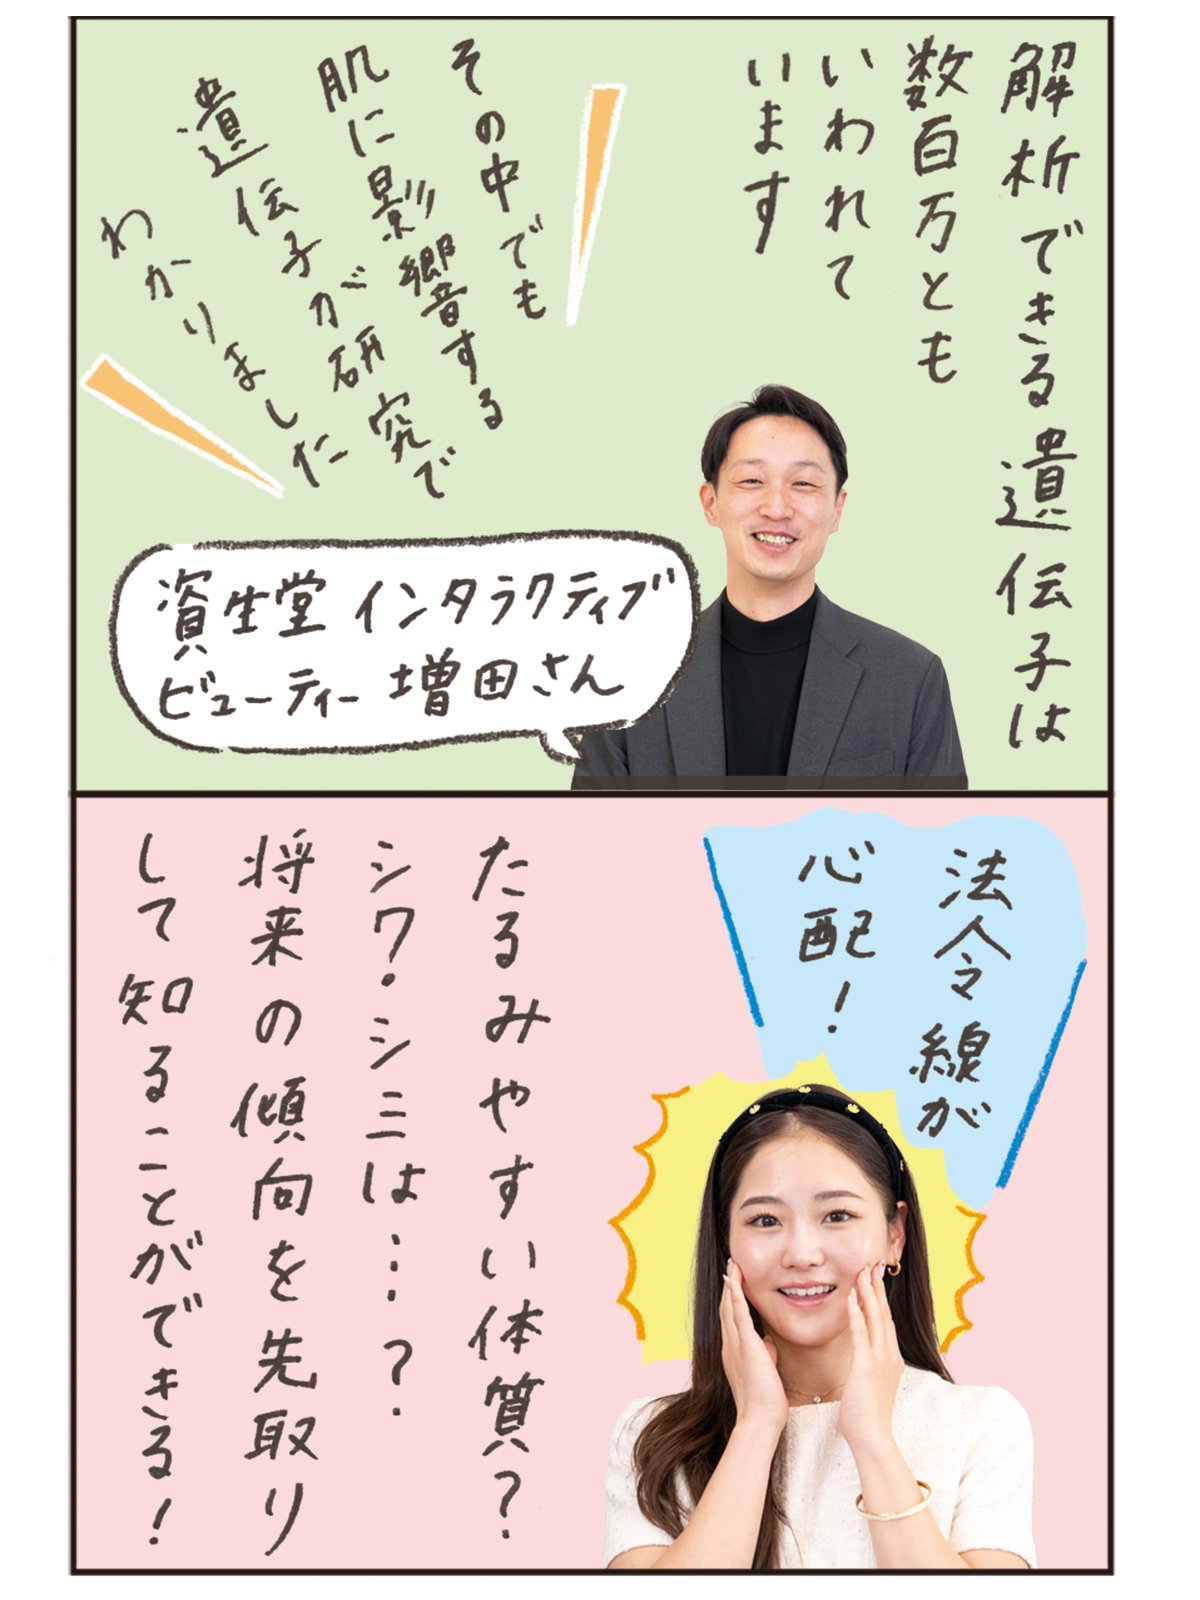 解析できる遺伝子は
数百万とも
いわれて
います
その中でも
肌に影響する
遺伝子が研究で
わかりました
資生堂 インタラクティブ
ビューティー 増田さん
法令線が
心配！
たるみやすい体質？
シワ・シミは…？
将来の傾向を先取り
して知ることができる！